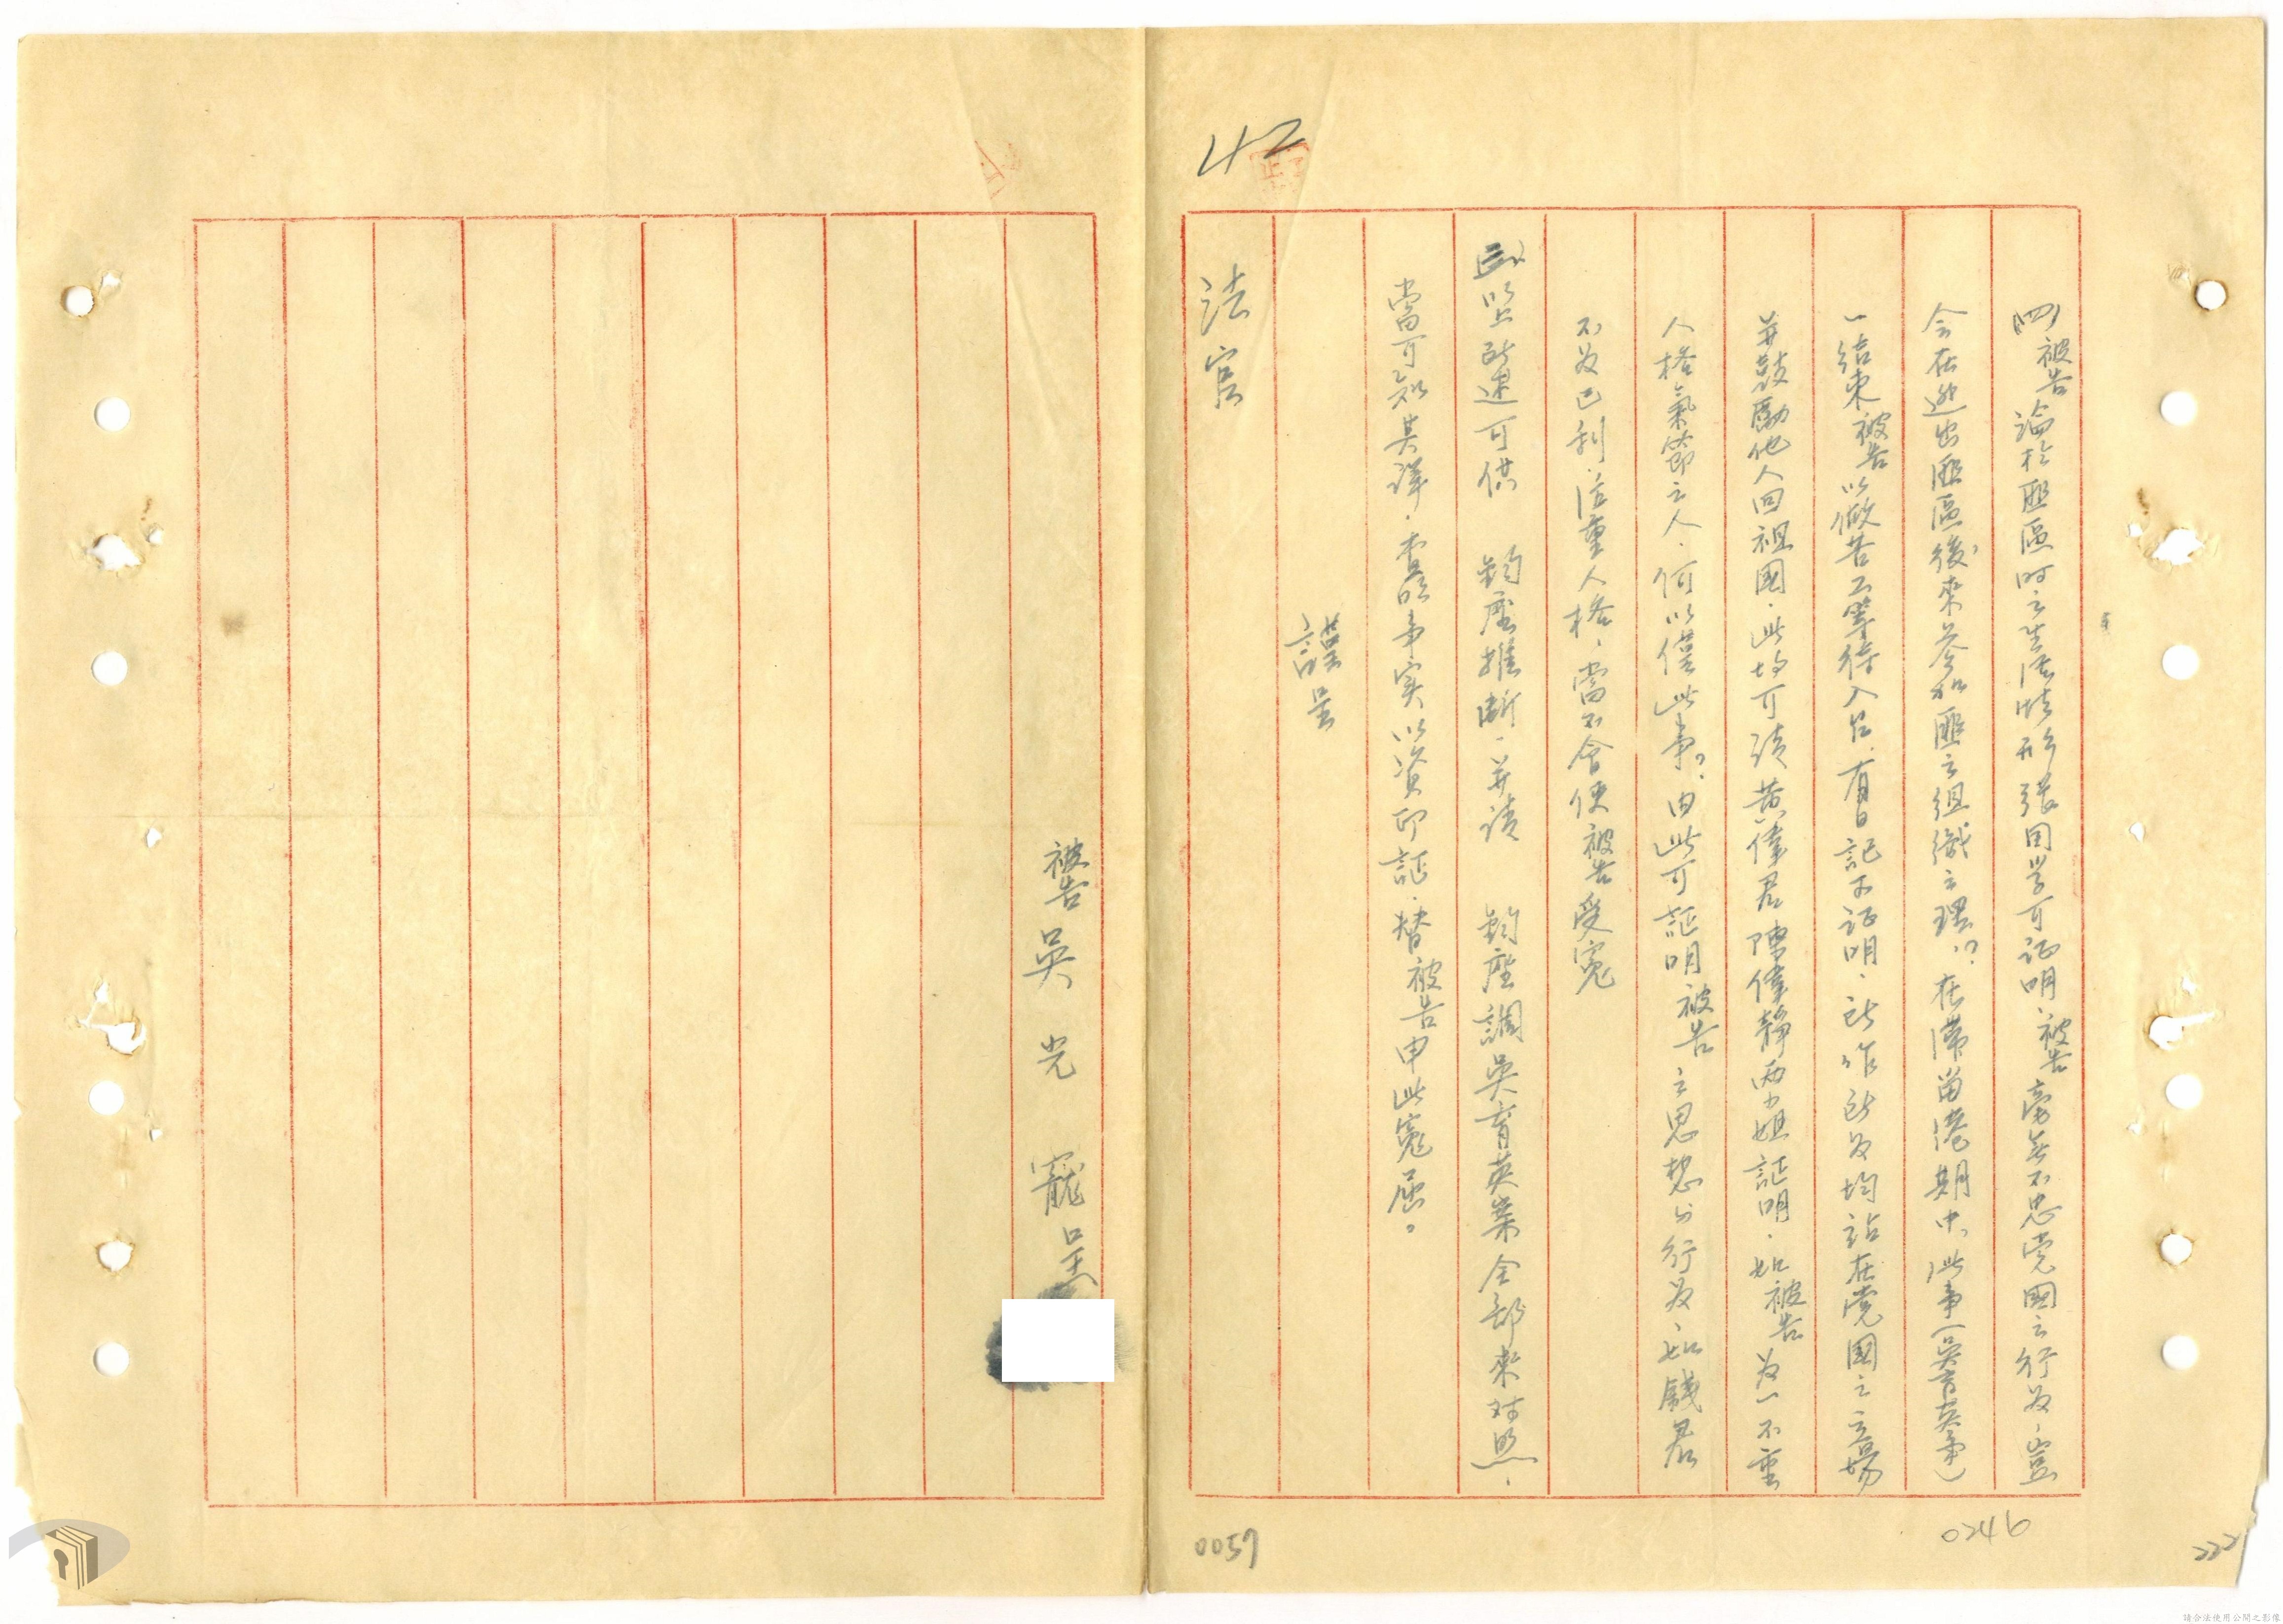 42
(四)被告論於匪區時之生活情形張同学可证明、被告旁無不忠党國之行為、豈
会在逃出匪區後來參加匪之組織之理？在滯留港期中、此事(吳育英事)
一結束被告以做苦工等待入台、有日記可证明、所作所為均站在党國之立場
並鼓勵他人回祖國、此均可請黃偉君陳偉靜両小姐証明、如被告為一不重
人格氣節之人、何以僅此事？由此可証明被告之思想与行為、如錢君
不為己利注重人格、當不會使被告受寃
(五)以上所述可供 鈞座推斷、並請 鈞座調吳育英案全部來対照、
當可知其詳、查明事实以資印証、替被告申此寃屈。
謹呈
法官
被告吳光寵呈
0246
0057
222
請合法使用公開之影像